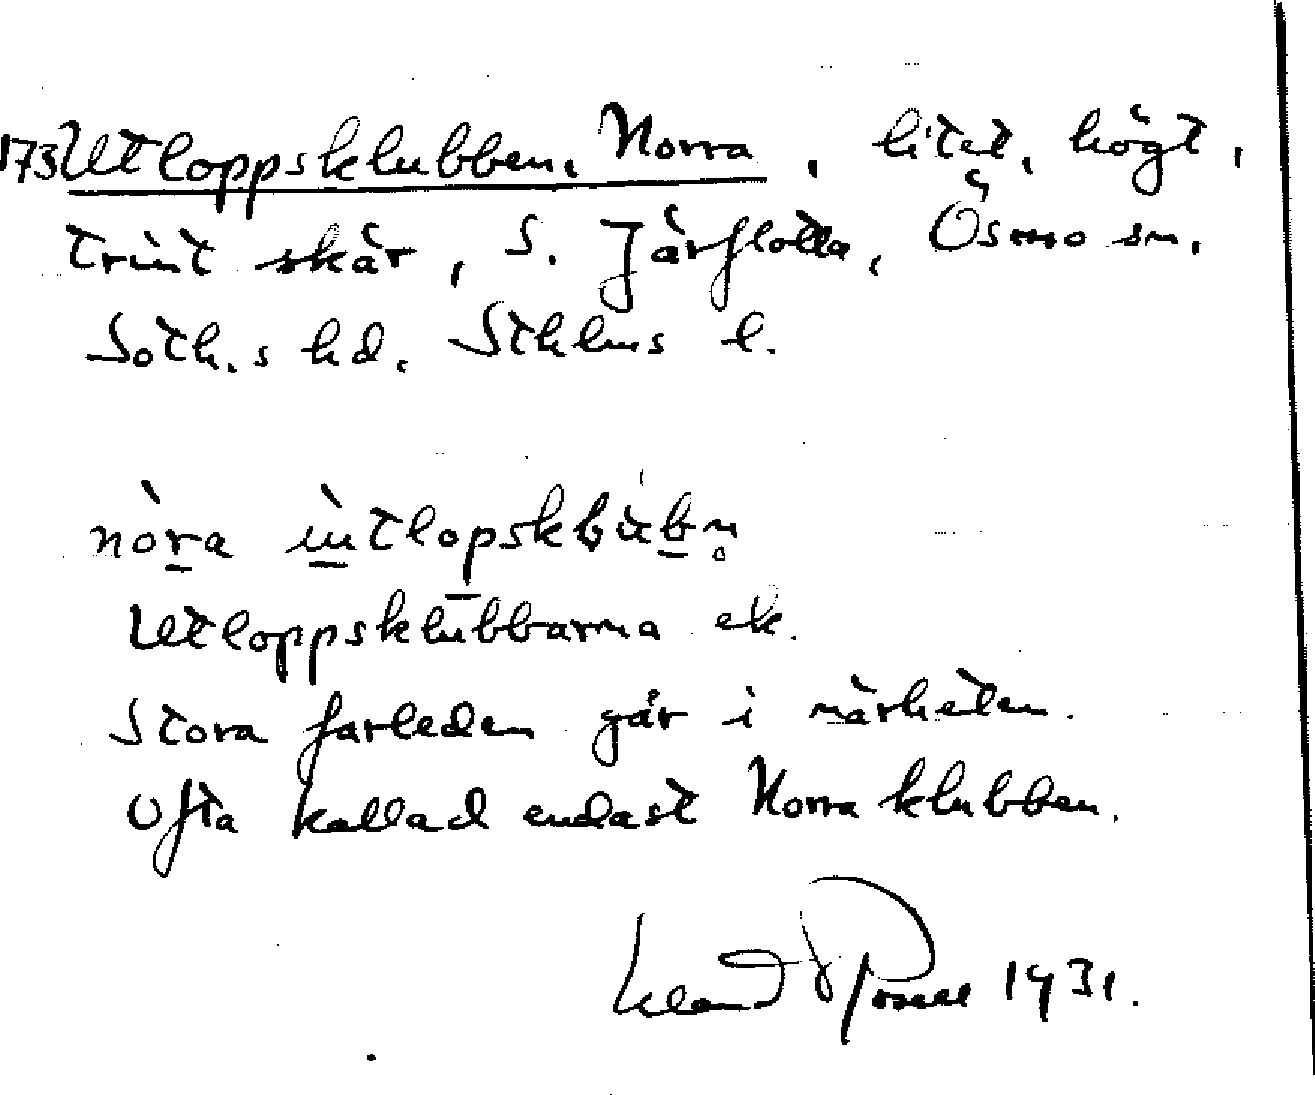 173 Utloppsklubben, Norra, litet, högt,
trint skär, S. Järflotta, Ösmo sn.
Soth.s hd. Sthlms l.
nòra ùtlopsklùbn̥
Utloppsklubbarna ek.
Stora farleden går i närheten.
Ofta kallad endast Norra klubben.
1931.